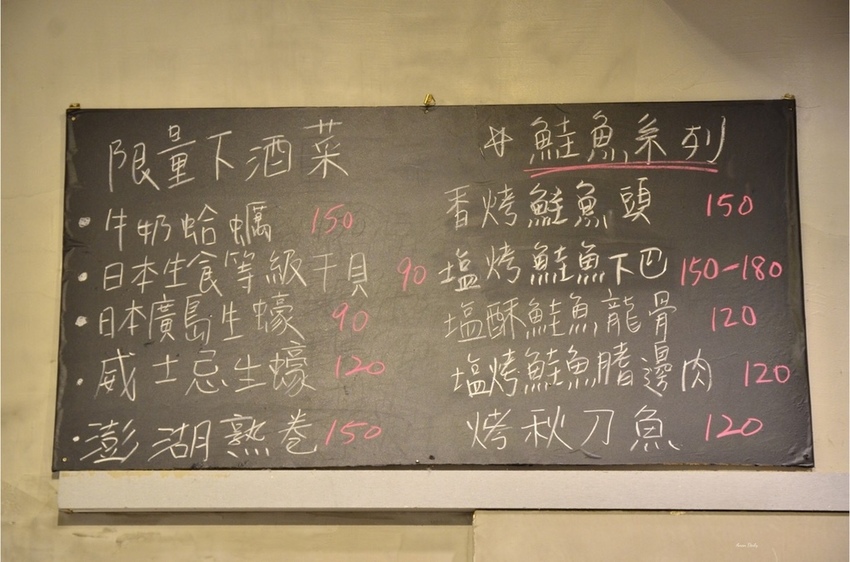 限量下酒菜
• 牛奶蛤蠣 150
• 日本生食等級干貝 90
• 日本廣島生蠔 90
• 威士忌生蠔 120
• 澎湖熟卷 150
鮭魚系列
香烤鮭魚頭 150
塩烤鮭魚下巴 150-180
塩酥鮭魚龍骨 120
塩烤鮭魚鰭邊肉 120
烤秋刀魚 120